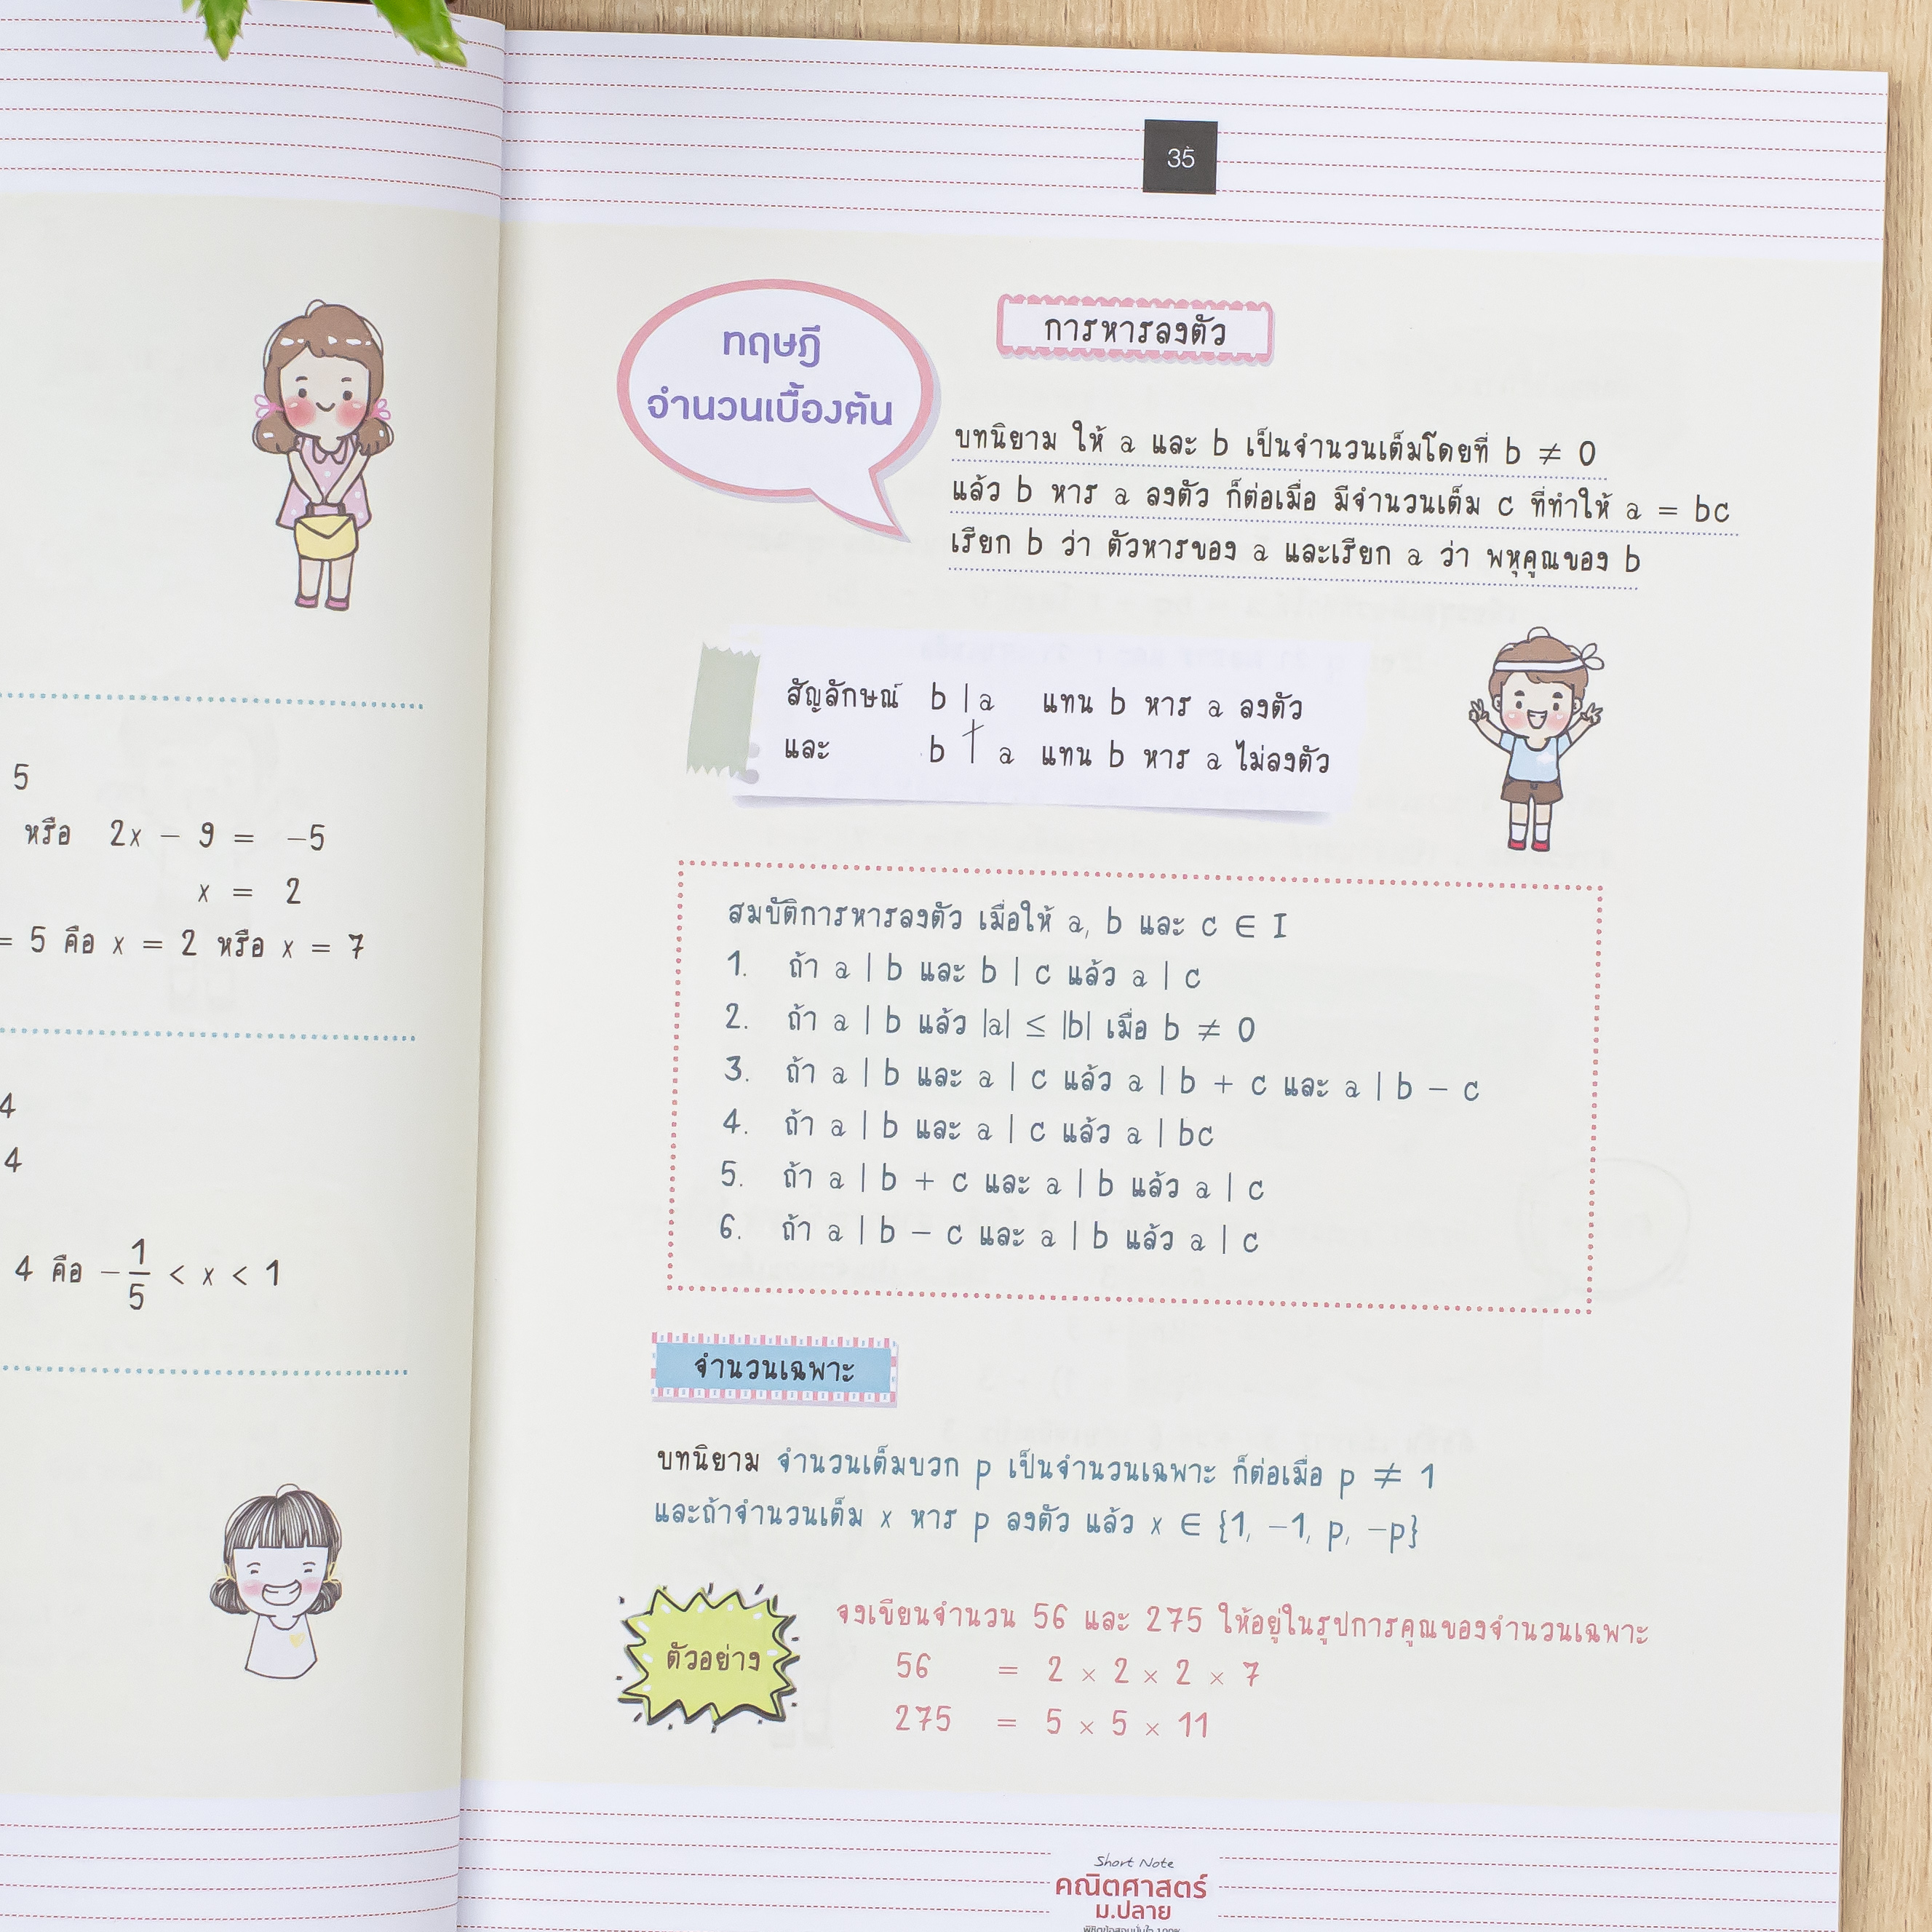 5
หรือ 2x − 9 = −5
x = 2
= 5 คือ x = 2 หรือ x = 7
4
4
4 คือ −1/5 < x < 1
35
ทฤษฎี
จำนวนเบื้องต้น
การหารลงตัว
บทนิยาม ให้ a และ b เป็นจำนวนเต็มโดยที่ b ≠ 0
แล้ว b หาร a ลงตัว ก็ต่อเมื่อ มีจำนวนเต็ม c ที่ทำให้ a = bc
เรียก b ว่า ตัวหารของ a และเรียก a ว่า พหุคูณของ b
สัญลักษณ์ b | a แทน b หาร a ลงตัว
และ b ∤ a แทน b หาร a ไม่ลงตัว
สมบัติการหารลงตัว เมื่อให้ a, b และ c ∈ I
1. ถ้า a | b และ b | c แล้ว a | c
2. ถ้า a | b แล้ว |a| ≤ |b| เมื่อ b ≠ 0
3. ถ้า a | b และ a | c แล้ว a | b + c และ a | b − c
4. ถ้า a | b และ a | c แล้ว a | bc
5. ถ้า a | b + c และ a | b แล้ว a | c
6. ถ้า a | b − c และ a | b แล้ว a | c
จำนวนเฉพาะ
บทนิยาม จำนวนเต็มบวก p เป็นจำนวนเฉพาะ ก็ต่อเมื่อ p ≠ 1
และถ้าจำนวนเต็ม x หาร p ลงตัว แล้ว x ∈ {1, −1, p, −p}
ตัวอย่าง
จงเขียนจำนวน 56 และ 275 ให้อยู่ในรูปการคูณของจำนวนเฉพาะ
56 = 2 × 2 × 2 × 7
275 = 5 × 5 × 11
Short Note
คณิตศาสตร์
ม.ปลาย